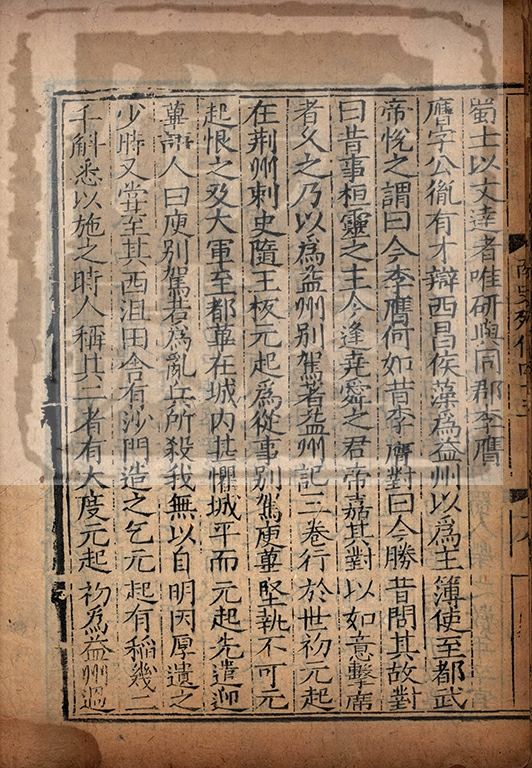 蜀士以文達者唯研與同郡李膺
膺字公胤有才辯西昌侯藻爲益州以爲主簿使至都武
帝悅之謂曰今李膺何如昔李膺對曰今勝昔問其故對
曰昔事桓靈之主今逢堯舜之君帝嘉其對以如意擊席
者久之乃以爲益州別駕著益州記三卷行於世初元起
在荆州刺史隨王板元起爲從事別駕庾蓽堅執不可元
起恨之及大軍至都蓽在城内甚懼城平而元起先遣迎
蓽語人曰庾別駕若爲亂兵所殺我無以自明因厚遺之
少時又嘗至其西沮田舍有沙門造之乞元起有稻幾二
千斛悉以施之時人稱其二者有大度元起初爲益州過